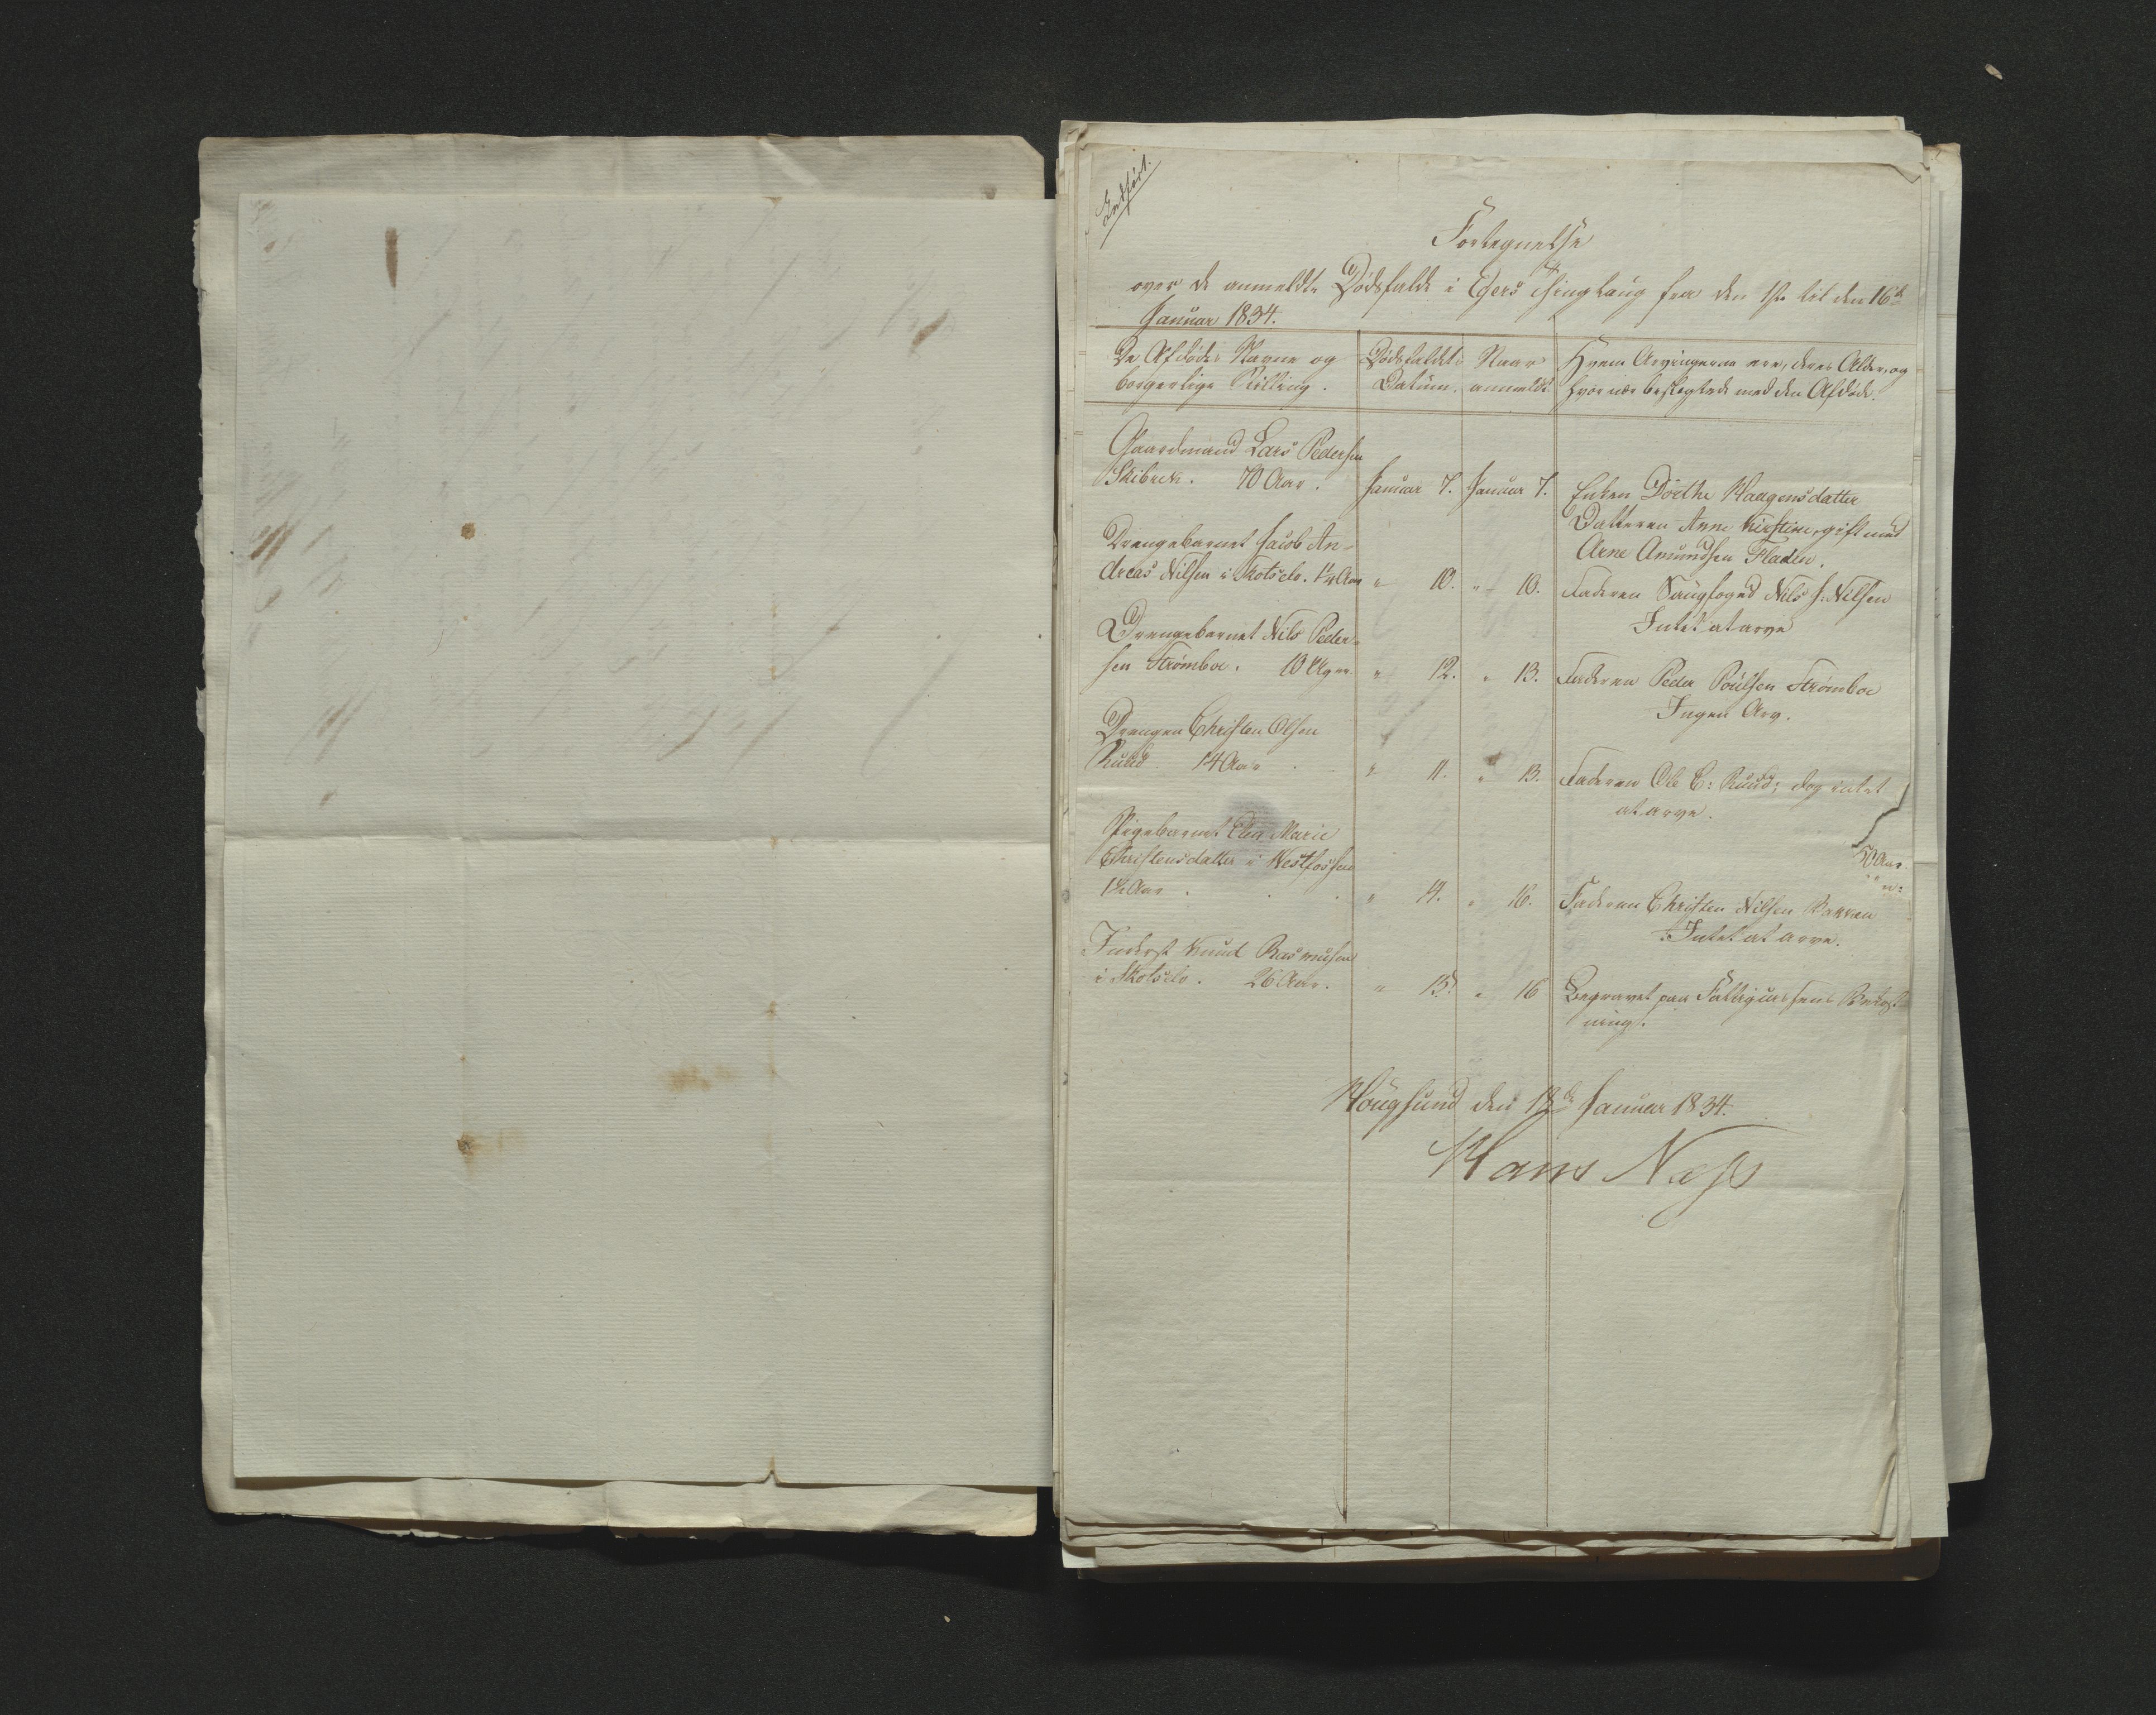 Indført.
Fortegnelse
over de anmeldte Dødsfalde i Egers Thinglaug fra den 1ste til den 16de
Januar 1834.
De Afdødes Navne og
borgerlige Stilling.
Dødsfaldets
Datum.
Naar
anmeldt.
Hvem Arvingerne ere, deres Alder, og
hvor nær beslegtede med den Afdøde.
Gaardmand Lars Pedersen
Skibrek. 70 Aar. Januar 7. Januar 7. Enken Dorthe Haagensdatter
Datteren Anne Kirstine, gift med
Arne Amundsen Fladen.
Drengebarnet Jacob An-
dreas Nilsen i Skotselv. 1¼ Aar " 10. " 10. Faderen Saugfoged Nils J: Nilsen
Intet at arve
Drengebarnet Nils Peder-
sen Strømboe. 10 Uger. " 12. " 13. Faderen Peder Poulsen Strømboe
Ingen Arv.
Drengen Christen Olsen
Ruud 14 Aar " 11. " 13. Faderen Ole C: Ruud; dog intet
at arve.
Pigebarnet Marie
Christensdatter i Westfossen
1½ Aar. " 14. " 16. Faderen Christen Nilsen Bakken
Intet at arve.
50 Aar
Inderst Knud Rasmusen
i Skotselv. 26 Aar. " 13. " 16 Begravet paa Fattigcassens Bekost-
ning.
Hougsund den 18de Januar 1834.
Hans Næss